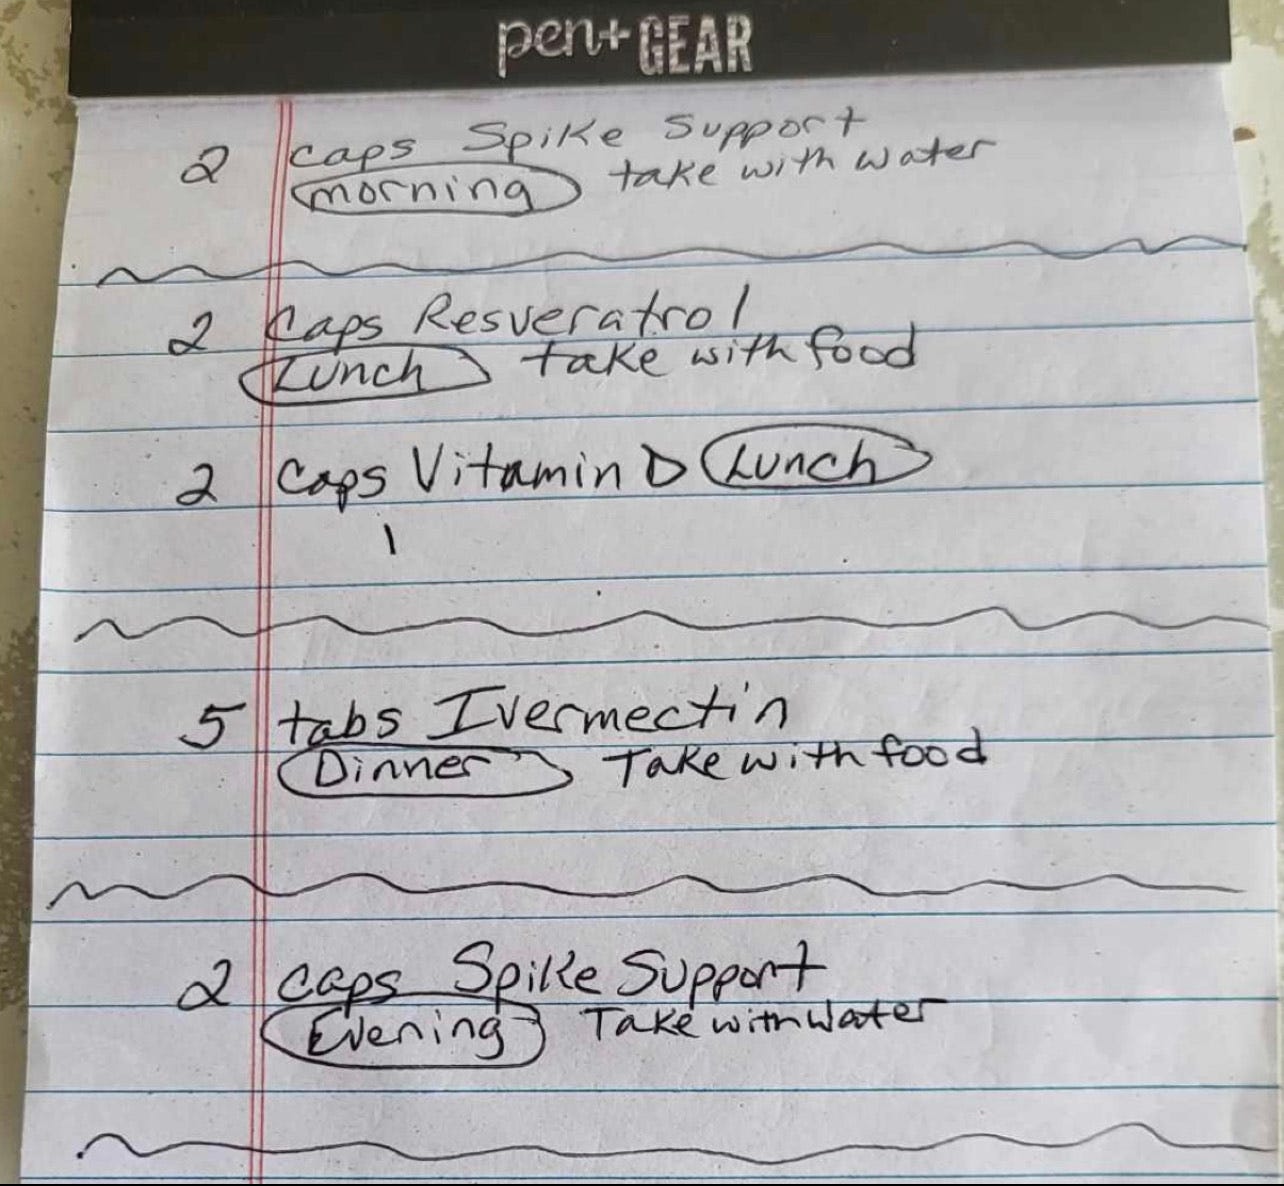 pen+GEAR
2 caps Spike Support
morning take with water
2 Caps Resveratrol
Lunch take with food
2 Caps Vitamin D Lunch
5 tabs Ivermectin
Dinner Take with food
2 caps Spike Support
Evening Take with Water